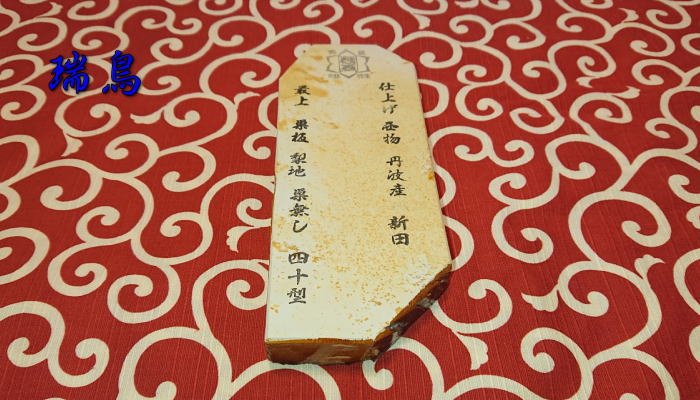 瑞鳥
仕上げ 巫物 丹波産 新田
最上 巣板 梨地 巣無し 四十型